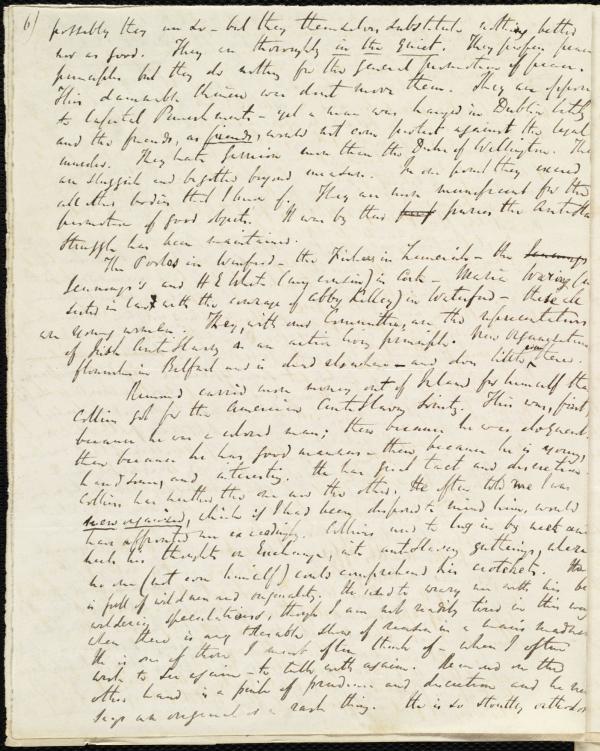 6)
possibly they can do - but they themselves substitute nothing better
nor as good. They are thoroughly in the quiet. They profess peace
principles but they do nothing for the general promotion of peace.
This damnable Chinese war don't move them. They are oppos
to Capital Punishments - yet a man was hanged in Dublin lately
and the friends, as friends, would not even protest against the legal
murder. They hate Garrison more than the Duke of Wellington. They
are sluggish and bigotted beyond measure. In one point they exceed
all other bodies that I know of. They are more munificent for the
promotion of good objects. It was by their purses the Anti Sla
Struggle has been maintained.
The Pooles in Wexford - the Fishers in Limerick - the
Jennings's and H E White (my cousin) in Cork - Maria Waring (
sister in law with the courage of Abby Kelley) in Waterford - these all
are young women. They, with our Committee, are the representatives
of Irish Anti Slavery as an active living principle. New Organization
flourishes in Belfast and is dead elsewhere - and does little even there.
Remond carried more money out of Ireland for himself than
Collins got for the American Anti Slavery Society. This was, first,
because he was a colored man; then because he was eloquent
then because he has good manners - then because he is young,
handsome, and interesting. He has great tact and discretion.
Collins has neither the one nor the other. He often told me I was
new organized, which if I had been disposed to mind him, would
have affronted me exceedingly. Collins used to lug in by neck and
heels his thoughts on Exchange, into antislavery gatherings, where
no one (not even himself) could comprehend his crotchets. He
is full of wildness and originality. He used to weary me with his be
wildering speculations, though I am not readily tired in this way
when there is any tolerable show of reason in a man's madness
He is one of those I most often think of - whom I often
wish to see again - to talk with again. Remond on the
other hand is a pink of prudence and discretion and he never
says an original or a rash thing. He is so stoutly orthodox